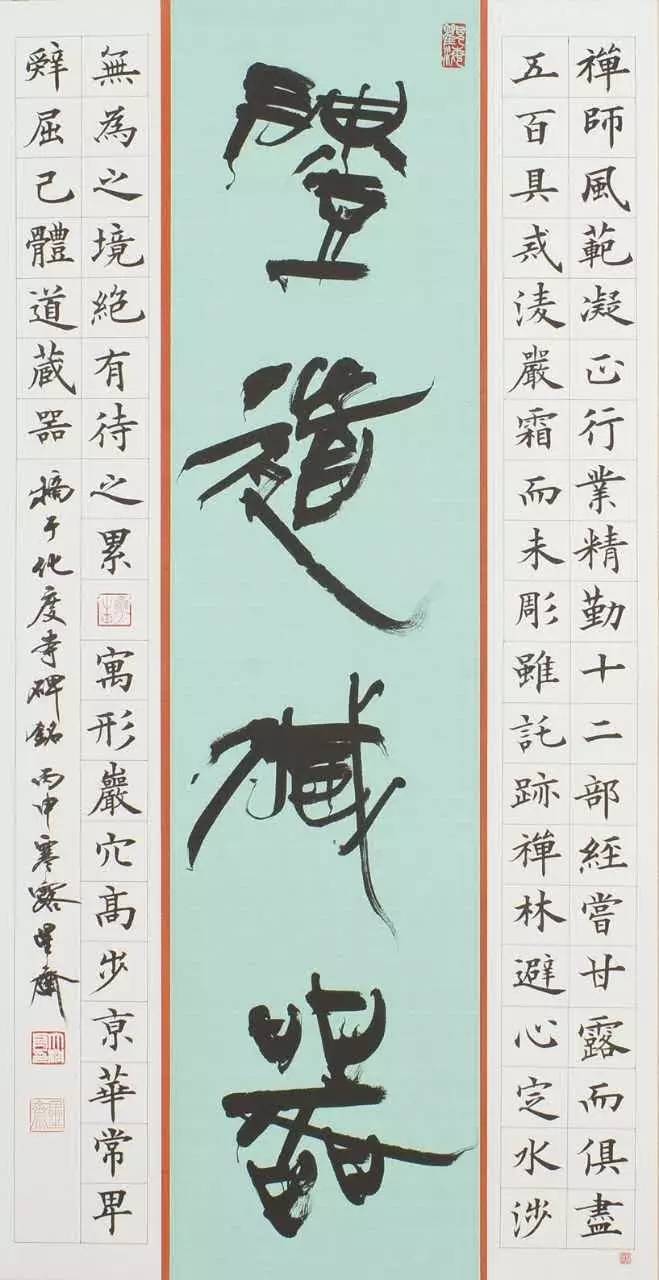 禪師風範凝正行業精勤十二部經嘗甘露而俱盡
五百具戒淩嚴霜而未彫雖託跡禪林避心定水涉
體道藏器
無為之境絕有待之累寓形巖穴高步京華常卑
辭屈己體道藏器 摘于化度寺碑銘 丙申寒露星齋